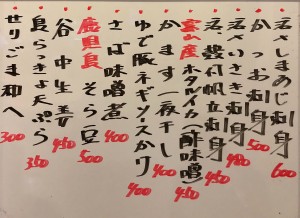 しまあじ刺身 600
かつお刺身 500
いさき刺身 480
帆立刺身 450
富山産 ホタルイカ(酢味噌) 450
かます一夜干し 400
ゆで豚ネギソースかけ 400
さば味噌煮 400
鹿児島 そら豆 500
谷中生姜 450
島らっきょ天ぷら 350
せりごま和へ 300